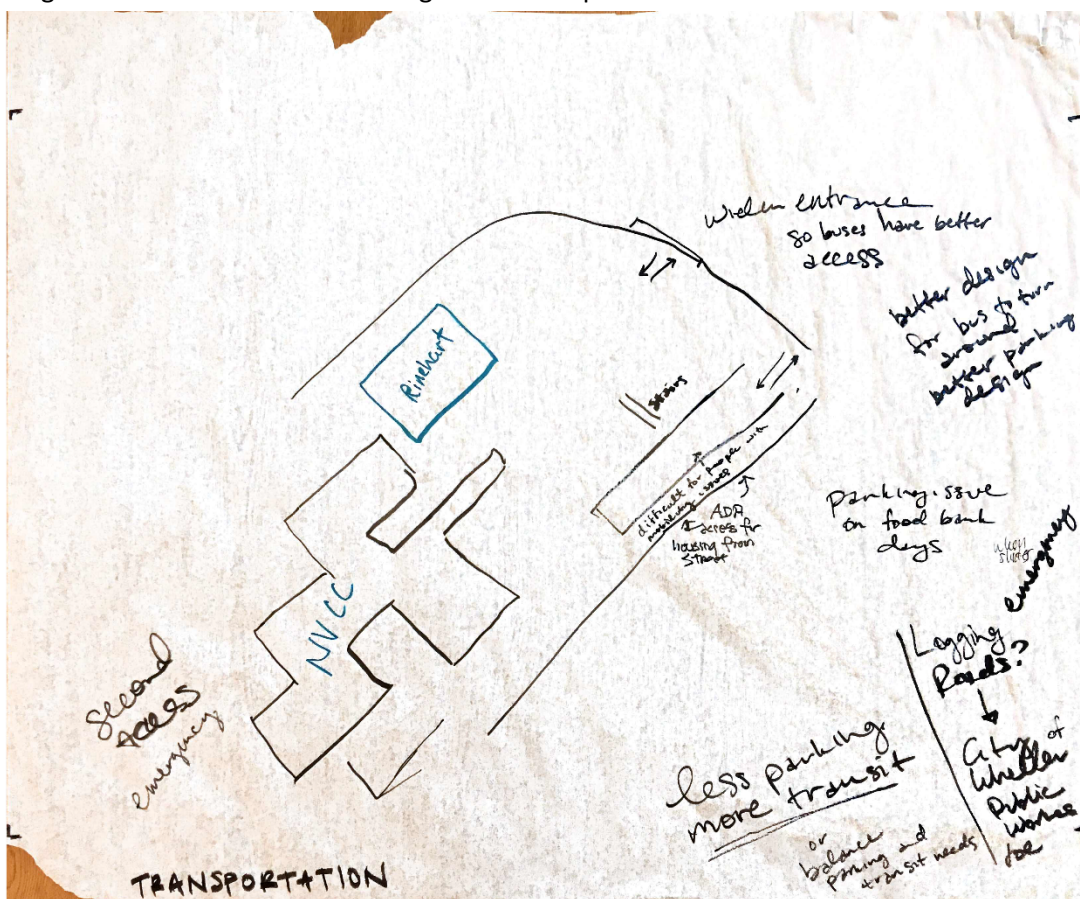 widen entrance
so buses have better
access
better design
for bus to turn
around
better parking
design
Rinehart
stairs
difficult for people with
mobility issues
ADA
access for
housing from
street
parking issue
on food bank
days
emergency
Logging
Roads?
City of
Wheeler
Public
Works
NVCC
second
access
emergency
less parking
more transit
or
balance
parking and
transit needs
TRANSPORTATION